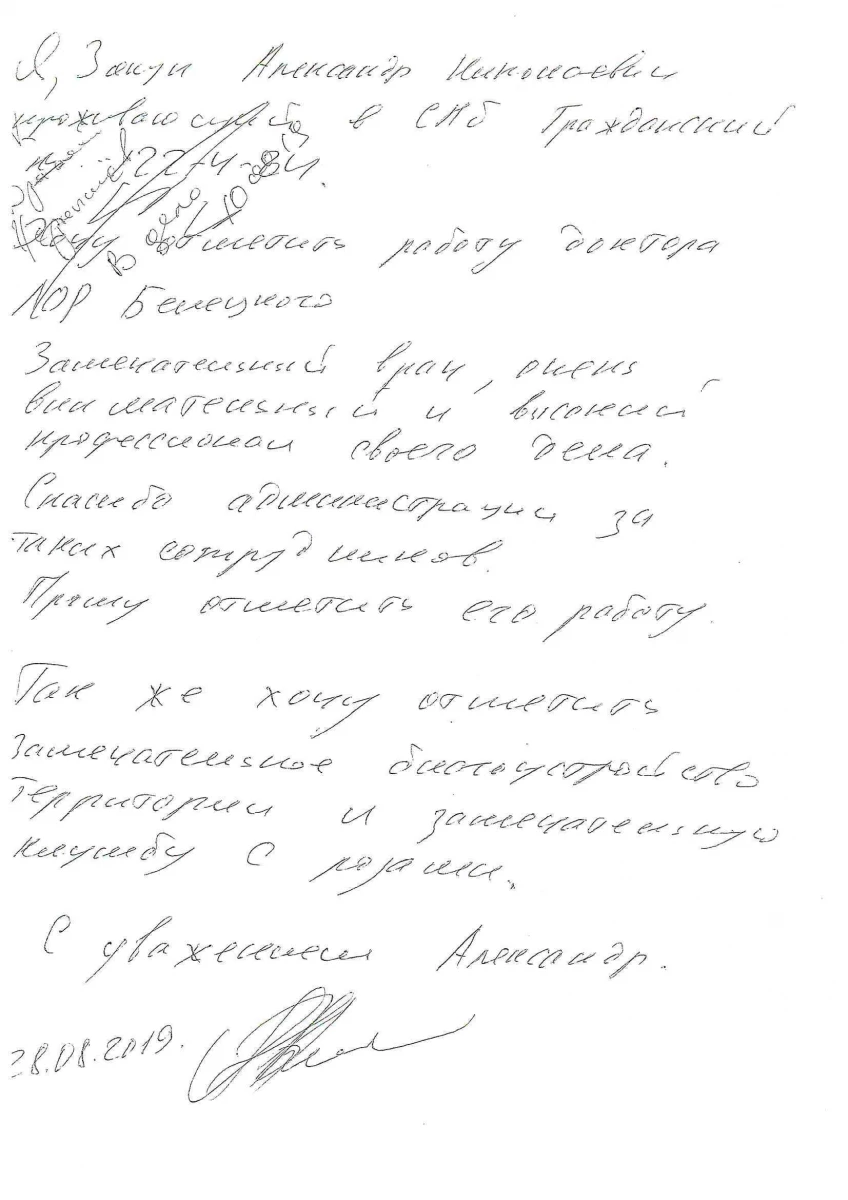 Я, Александр Николаевич
проживающий в СПб Гражданский
пр. 122-4-84.
Хочу отметить работу доктора
ЛОР Белецкого
Замечательный врач, очень
внимательный и высокий
профессионал своего дела.
Спасибо администрации за
таких сотрудников.
Прошу отметить его работу.
Так же хочу отметить
замечательное благоустройство
территории и замечательную
клумбу с розами.
С уважением Александр.
28.08.2019.